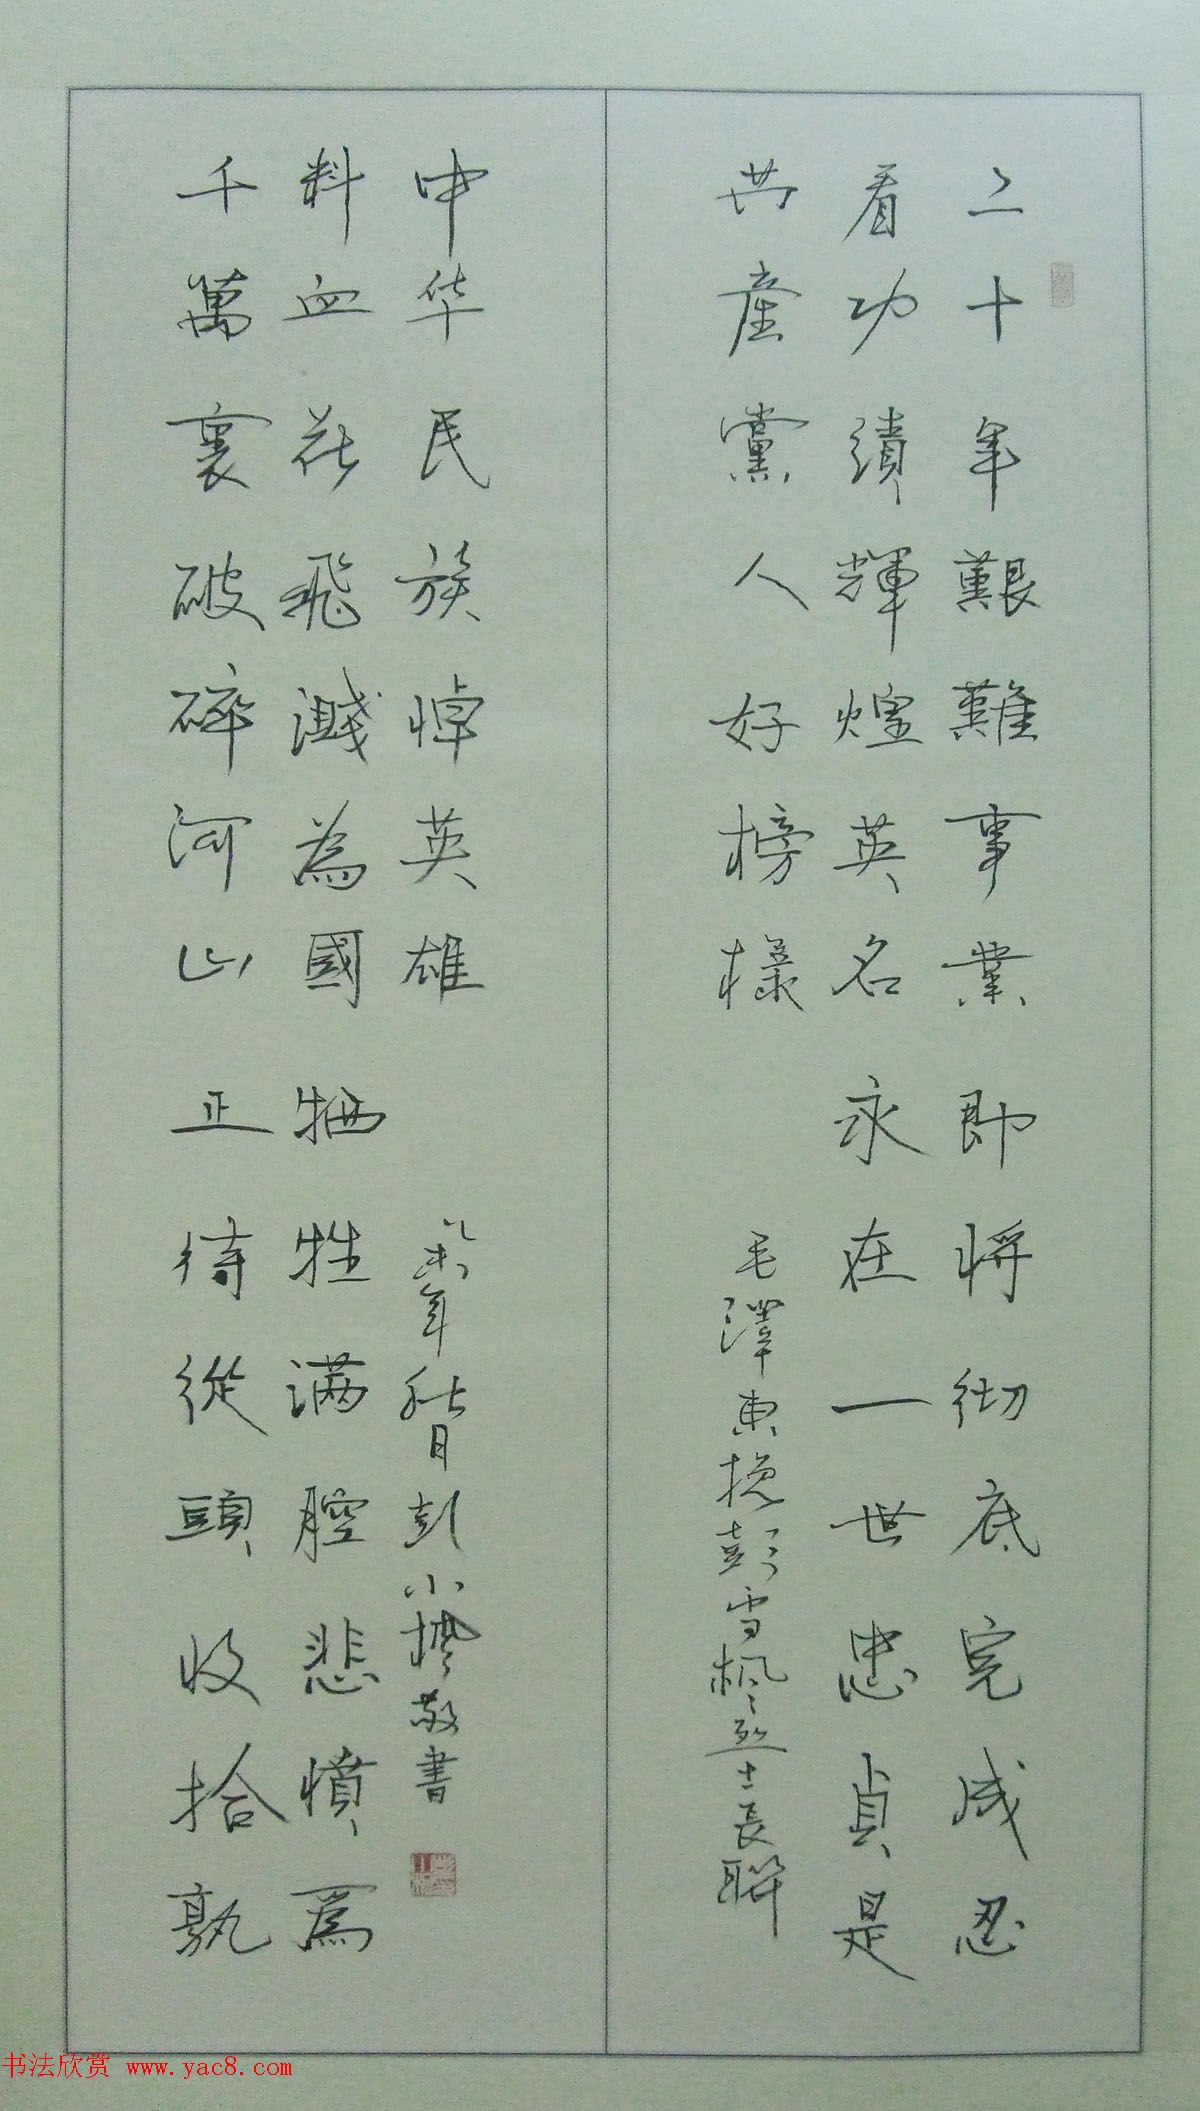 二十年艱難事業即将彻底完成忍
看功績輝煌英名永在一世忠貞是
共產黨人好榜樣
毛澤東挽彭雪枫烈士長聯
千萬裏破碎河山正待從頭收拾孰
料血花飛濺為國牺牲满腔悲憤爲
中华民族悼英雄
年 月彭小 敬書
书法欣赏 www.yac8.com